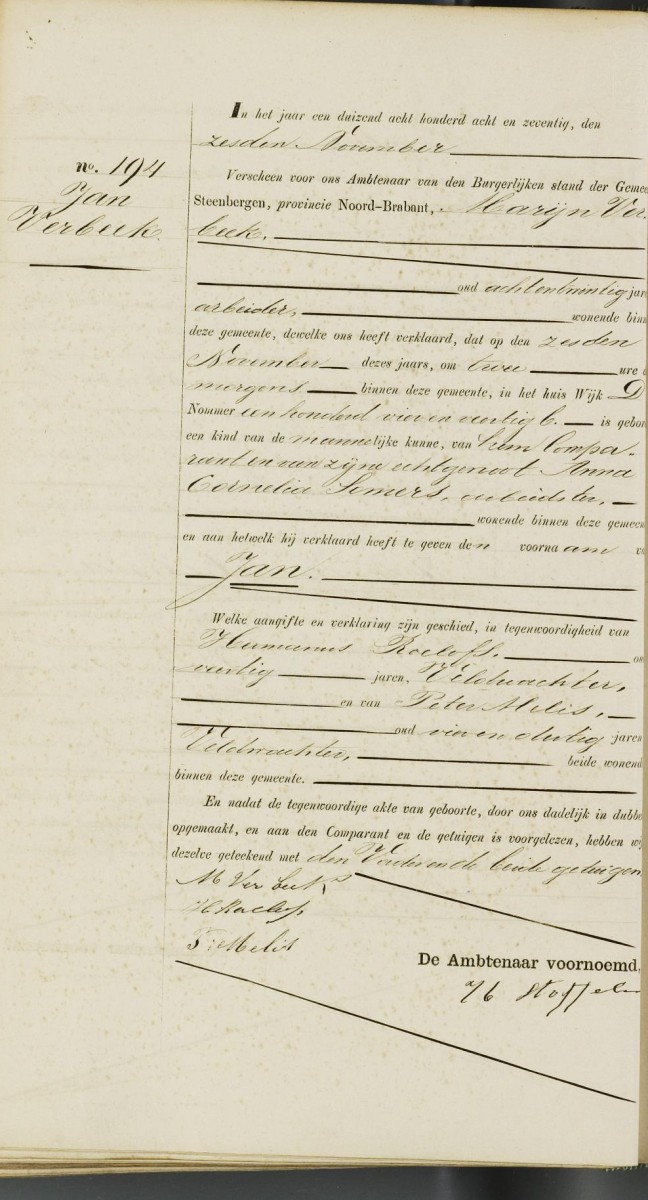 In het jaar een duizend acht honderd acht en zeventig, den
zesden November
no. 194
Jan
Verbeek.
Verscheen voor ons Ambtenaar van den Burgerlijken stand der Gemee
Steenbergen, provincie Noord-Brabant, Marijn Ver-
beek.
oud achtentwintig jare
arbeider, wonende binn
deze gemeente, dewelke ons heeft verklaard, dat op den zesden
November dezes jaars, om twee ure d
morgens binnen deze gemeente, in het huis Wijk D
Nommer een honderd vier en veertig b. is gebor
een kind van de mannelijke kunne, van hem Compa-
rant en van zijne echtgenoot Anna
Cornelia Somers, arbeidster,
wonende binnen deze gemeen
en aan hetwelk hij verklaard heeft te geven den voornaam v
Jan.
Welke aangifte en verklaring zijn geschied, in tegenwoordigheid van
Hermanus Roeloffs. ou
veertig jaren, Veldwachter,
en van Peter Melis,
oud vier en dertig jaren
Veldwachter, beide wonend
binnen deze gemeente.
En nadat de tegenwoordige akte van geboorte, door ons dadelijk in dubbe
opgemaakt, en aan den Comparant en de getuigen is voorgelezen, hebben wij
dezelve geteekend met den Vader en de beide getuigen
M Verbeek
P. Melis
De Ambtenaar voornoemd,